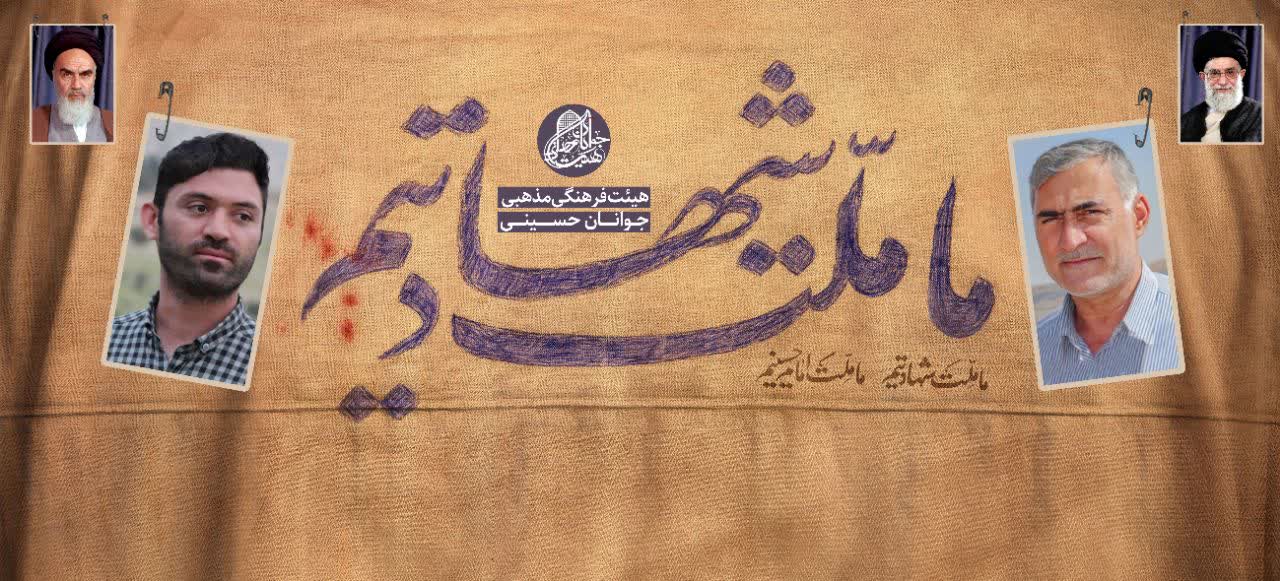 ما ملّت شهادتیم
هیئت جوانان حسینی
هیئت فرهنگی مذهبی
جوانان حسینی
ما ملّت شهادتیم ما ملّت امام حسینیم